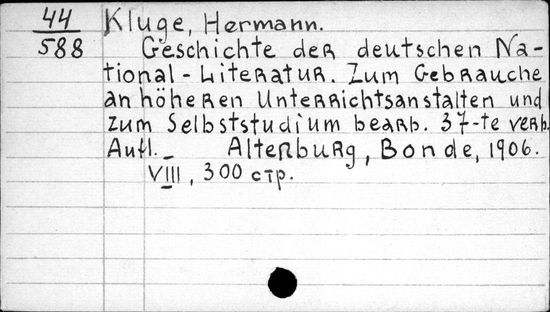 44
588
Kluge, Hermann.
Geschichte der deutschen Na-
tional-Literatur. Zum Gebrauche
an höheren Unterrichtsanstalten und
zum Selbststudium bearb. 37-te verb.
Aufl. _ Altenburg, Bonde, 1906.
VIII, 300 стр.